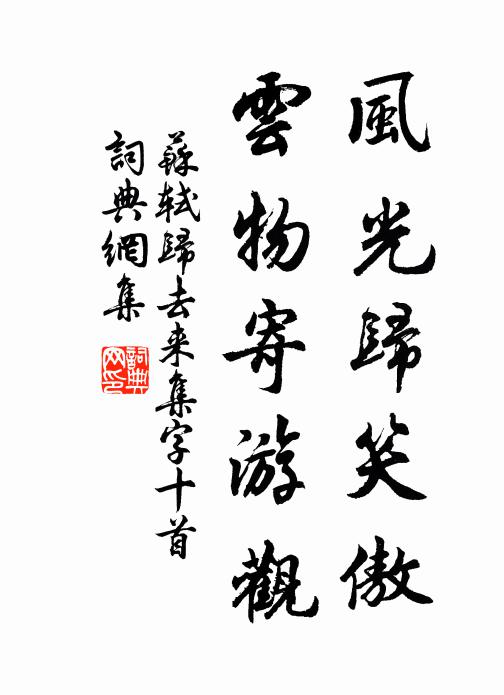 風光歸笑傲
雲物寄游觀
蘇軾歸去来集字十首
詞典網集
詞典網印